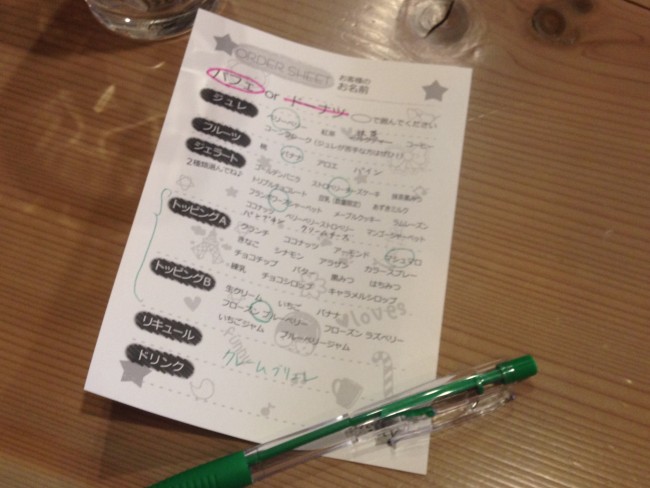 ORDER SHEET お客様の
お名前
パフェ or ドーナツ ○で囲んでください
ジュレ ベリーベリー 紅茶 コーヒー
コーンフレーク（ジュレが苦手な方はぜひ！）
フルーツ 桃 バナナ アロエ パイン
ジェラート
2種類選んでね♪
ゴールデンバニラ ストロベリーチーズケーキ 抹茶黒みつ
トリプルチョコレート 豆乳（数量限定） あずきミルク
フランボワーズシャーベット メープルクッキー ラムレーズン
ココナッツ ベリーベリーストロベリー マンゴーシャーベット
トッピングA
クランチ ココナッツ アーモンド マシュマロ
きなこ シナモン アラザラ カラースプレー
チョコチップ バター 黒みつ はちみつ
練乳 チョコシロップ キャラメルシロップ
トッピングB
生クリーム いちご バナナ
フローズン ブルーベリー フローズン ラズベリー
いちごジャム ブルーベリージャム
loves
リキュール
funny
ドリンク